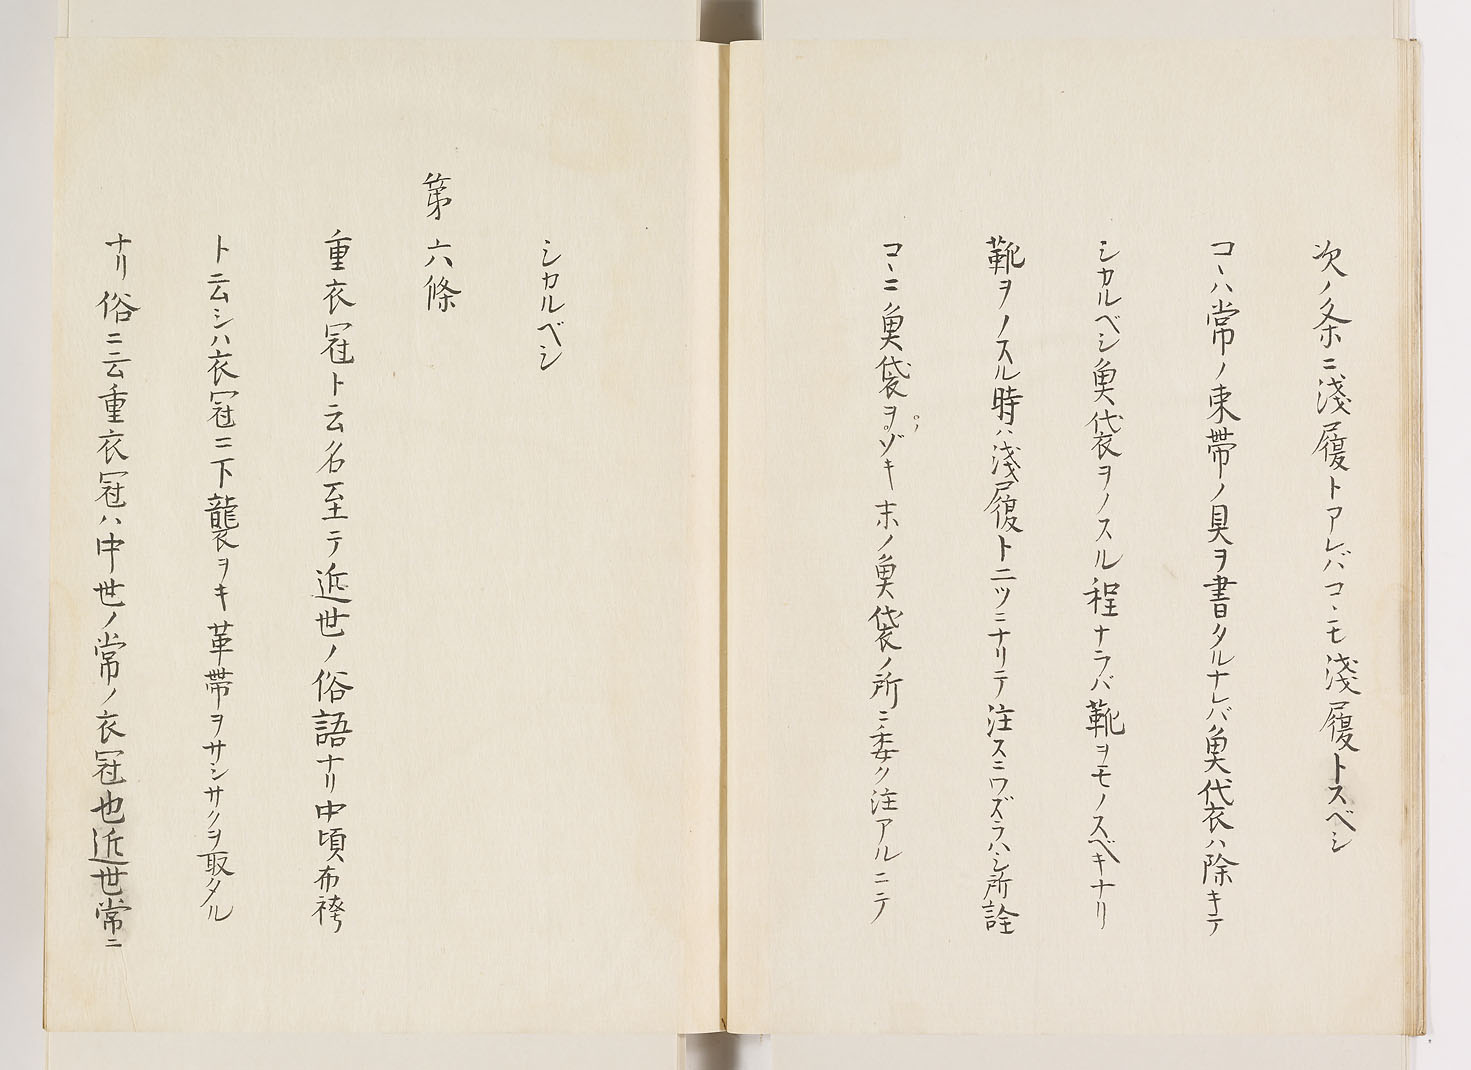 次ノ条ニ淺履トアレバコヽモ淺履トスベシ
コヽハ常ノ束帶ノ具ヲ書タルナレバ魚袋ハ除キテ
シカルベシ魚袋ヲノスル程ナラバ靴ヲモノスベキナリ
靴ヲノスル時ハ淺履ト二ツニナリテ注スニワズラハシ所詮
コヽニ魚袋ヲゾキ末ノ魚袋ノ所ニ委ク注アルニテ
シカルベシ
第六條
重衣冠ト云名至テ近世ノ俗語ナリ中頃布袴
ト云シハ衣冠ニ下襲ヲキ革帶ヲサシサクヲ取タル
ナリ俗ニ云重衣冠ハ中世ノ常ノ衣冠也近世常ニ